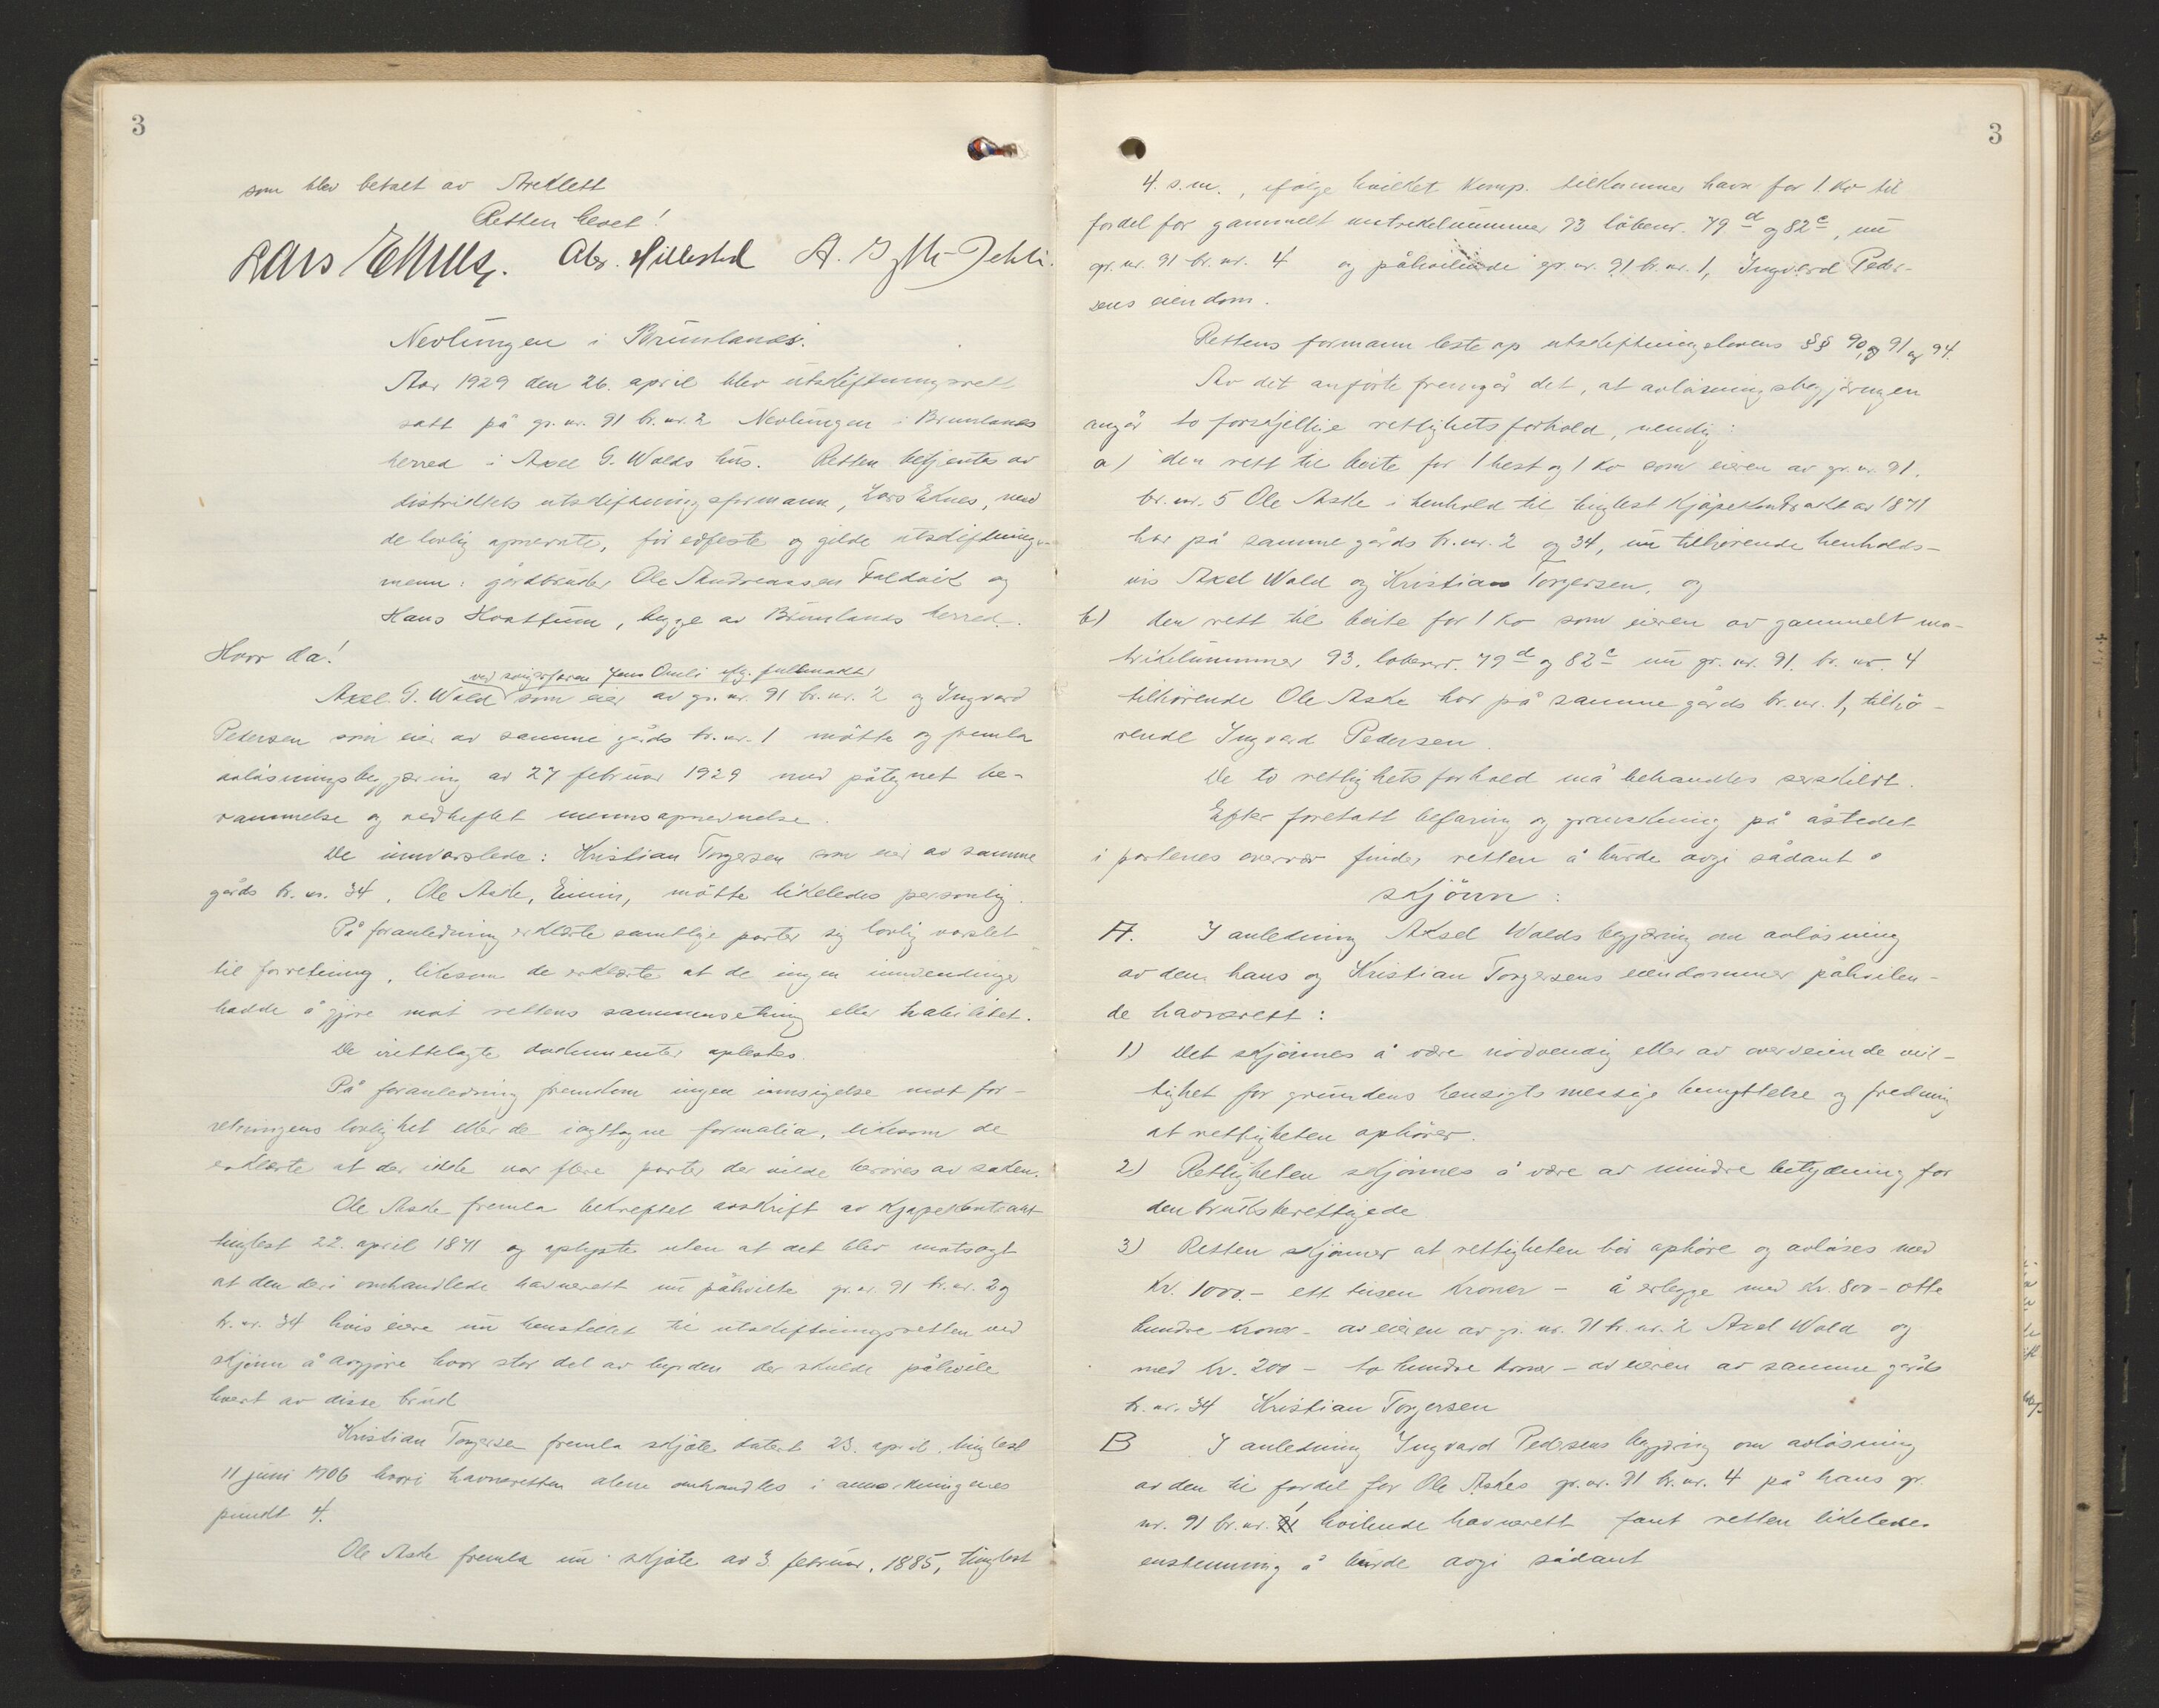 3
som blev betalt av Areklett
Retten hevet!
Lars Eknes. Abr. Hillestad A.
Nevlungen i Brunlanes.
Aar 1929 den 26. april blev utskiftningsrett
satt på gr. nr. 91 br. nr. 2 Nevlungen i Brunlanes
herred i Axel G. Walds hus. Retten betjentes av
distriktets utskiftningsformann, Lars Eknes, med
de lovlig opnevnte, før edfeste og gilde utskiftnings-
menn: gårdbruker Ole Andreassen Faldvik og
Hans Hvattum, begge av Brunlanes herred.
Hvor da!
ved svigerfaren Jens Omli iflg. fullmakt
Axel G. Wald som eier av gr. nr. 91 br. nr. 2 og Ingvard
Pedersen som eier av samme gårds br. nr. 1 møtte og fremla
avløsningsbegjæring av 27 februar 1929 med påtegnet be-
rammelse og vedheftet mennsopnevnelse.
De innvarslede: Kristian Torgersen som eier av samme
gårds br. nr. 34, Ole Aske, møtte likeledes personlig.
På foranledning erklærte samtlige parter sig lovlig varslet
til forretning, likesom de erklærte at de ingen innvendinger
hadde å gjøre mot rettens sammensetning eller habilitet.
De irettelagte dokumenter oplestes.
På foranledning fremkom ingen innsigelse mot for-
retningens lovlighet eller de iagttagne formalia, likesom de
erklærte at der ikke var flere parter der vilde berøres av saken.
Ole Aske fremla bekreftet avskrift av kjøpekontrakt
tinglest 22. april 1871 og oplyste uten at det blev motsagt
at den deri omhandlede havnerett nu påhvilte gr. nr. 91 br. nr. 2 og
br. nr. 34 hvis eiere nu henstillet til utskiftningsretten ved
skjønn å avgjøre hvor stor del av byrden der skulde påhvile
hvert av disse bruk
Kristian Torgersen fremla skjøte datert 23. april, tinglest
11 juni 1906 hvori havneretten alene omhandles i anmerkningenes
punkt 4.
Ole Aske fremla nu skjøte av 3 februar, 1885, tinglest
3
4. s.m., ifølge hvilket komp. tilkommer havn for 1 ko til
fordel for gammelt matrikelnummer 93 løbenr. 79 d og 82 c, nu
gr. nr. 91 br. nr. 4 og påhvilende gr. nr. 91 br. nr. 1, Ingvard Peder-
sens eiendom.
Rettens formann leste op utskiftningslovens §§ 90, og 91 og 94.
Av det anførte fremgår det, at avløsningsbegjæringen
angår to forskjellige rettighetsforhold, nemlig:
a) den rett til beite for 1 hest og 1 ko som eieren av gr. nr. 91.
br. nr. 5 Ole Aske i henhold til tinglest kjøpekontrakt av 1871
har på samme gårds br. nr. 2 og 34, nu tilhørende henholds-
vis Axel Wald og Kristian Torgersen, og
b) den rett til beite for 1 ko som eieren av gammelt ma-
trikelnummer 93, løbenr. 79 d og 82 c nu gr. nr. 91. br. nr. 4
tilhørende Ole Aske har på samme gårds br. nr. 1, tilhø-
rende Ingvard Pedersen.
De to rettighetsforhold må behandles serskildt.
Efter foretatt befaring og granskning på åstedet
i partenes overvær finder retten å burde avgi sådant
skjønn:
A. I anledning Aksel Walds begjæring om avløsning
av den hans og Kristian Torgersens eiendommer påhvilen-
de havnerett:
1) Det skjønnes å være nødvendig eller av overveiende vik-
tighet for grundens hensigtsmessige benyttelse og fredning
at rettigheten ophører.
2) Rettigheten skjønnes å være av mindre betydning for
den bruksberettigede
3) Retten skjønner at rettigheten bør ophøre og avløses med
Kr. 1000.- ett tusen kroner - å erlegge med Kr. 800 - otte
hundre kroner - av eieren av gr. nr. 91 br. nr. 2 Axel Wald og
med Kr. 200 - to hundre kroner - av eieren av samme gårds
br. nr. 34 Kristian Torgersen
B I anledning Ingvard Pedersens begjæring om avløsning
av den til fordel for Ole Askes gr. nr. 91 br. nr. 4 på hans gr.
nr. 91 br. nr. 1 hvilende havnerett fant retten likeledes
enstemmig å burde avgi sådant